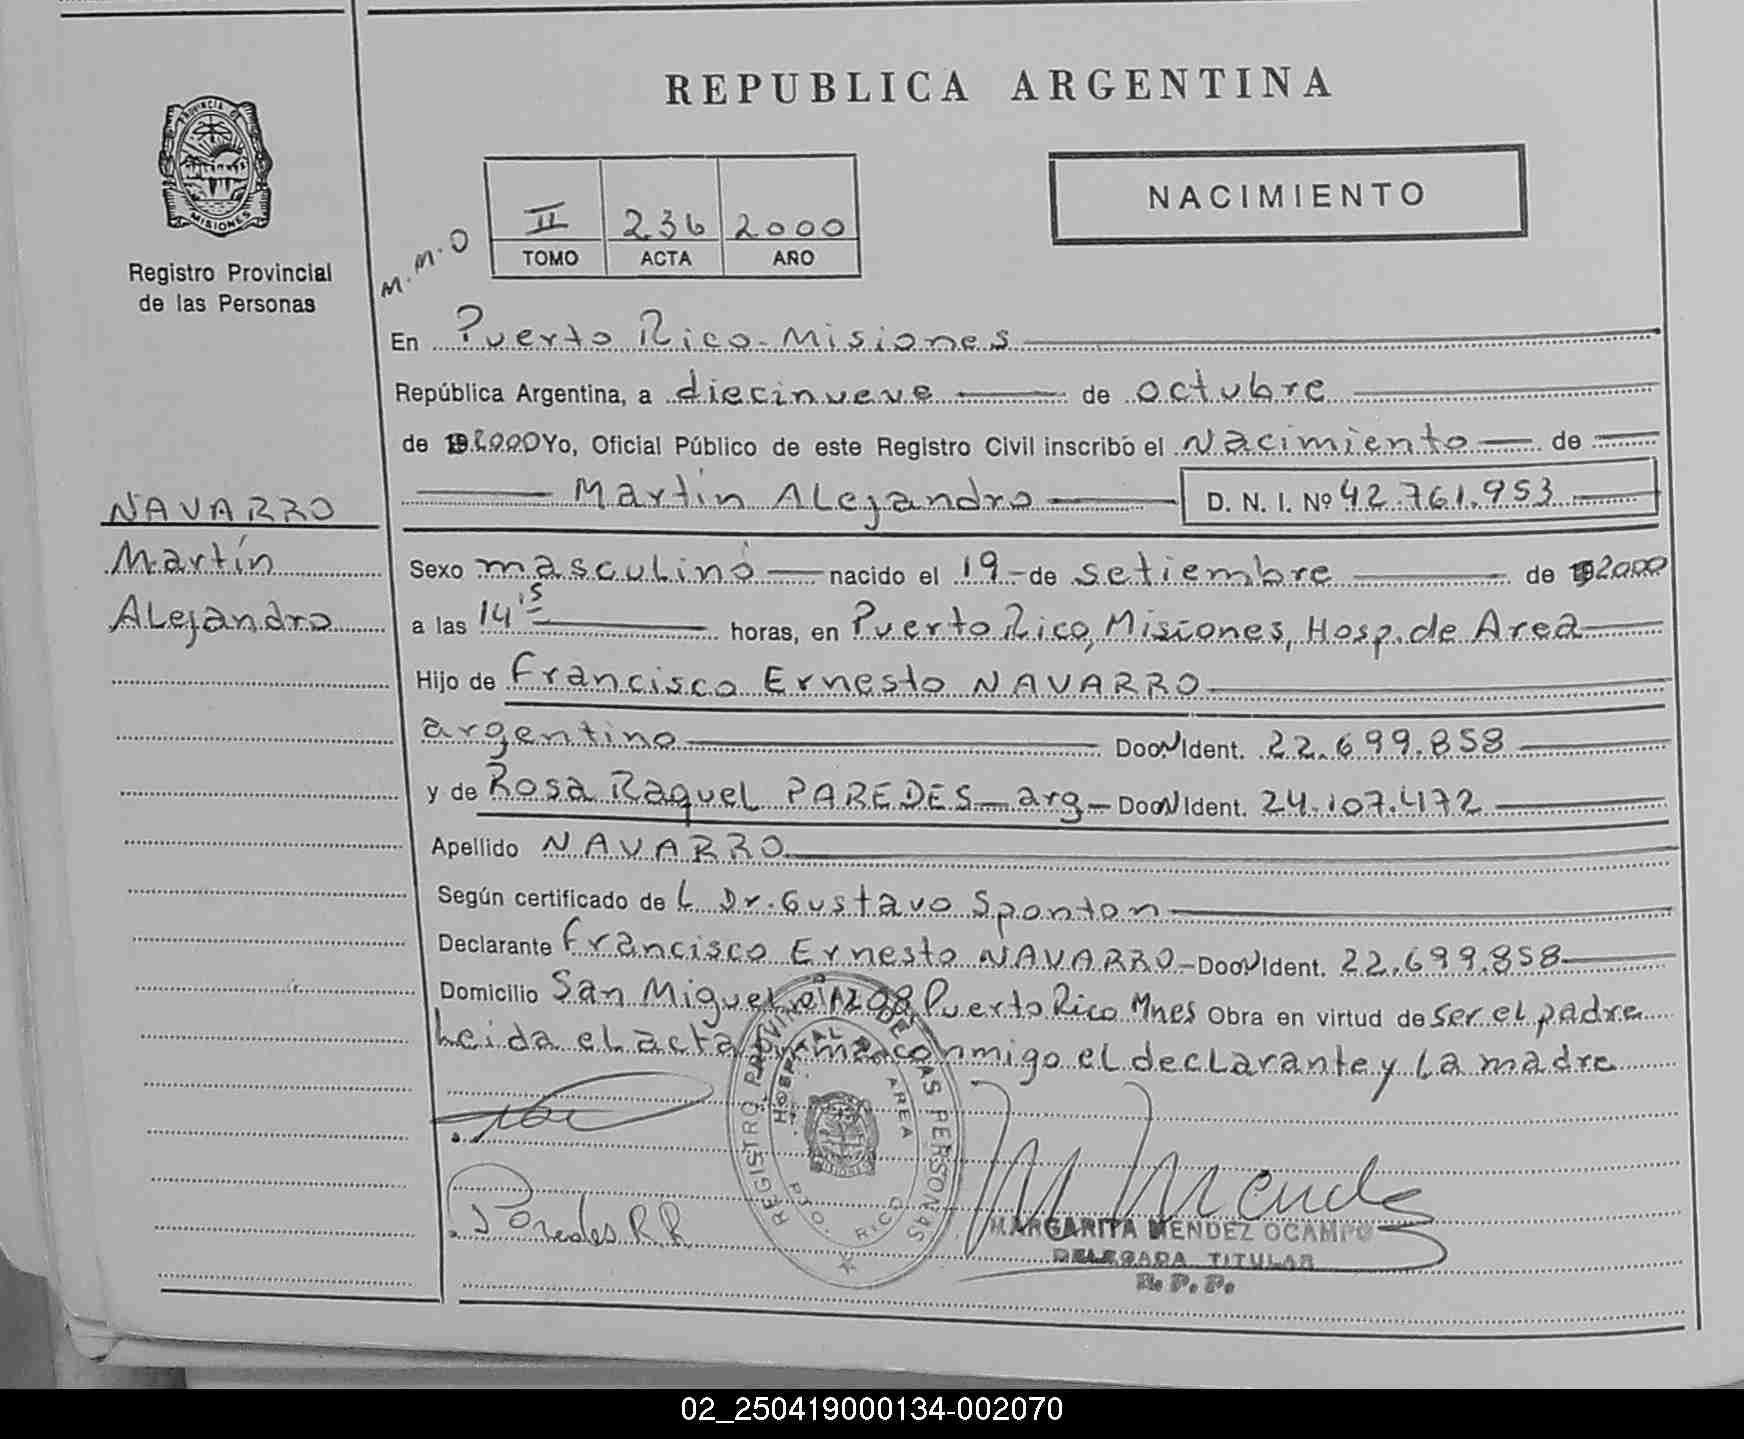 REPUBLICA ARGENTINA
PROVINCIA DE MISIONES
Registro Provincial
de las Personas
NACIMIENTO
II 236 2000
TOMO ACTA AÑO
M.M.O
En Puerto Rico - Misiones
República Argentina, a diecinueve de octubre
de 2000 Yo, Oficial Público de este Registro Civil inscribo el Nacimiento de
Martín Alejandro D. N. I. Nº 42.761.953
NAVARRO
Martín
Alejandro
Sexo masculino nacido el 19 - de setiembre de 192000
a las 14 15 horas, en Puerto Rico, Misiones, Hosp. de Area
Hijo de Francisco Ernesto NAVARRO
argentino Doc. N Ident. 22.699.858
y de Rosa Raquel PAREDES - arg - Doc. N Ident. 24.107.472
Apellido NAVARRO
Según certificado de L Dr. Gustavo Sponton
Declarante Francisco Ernesto NAVARRO - Doc. N Ident. 22.699.858
Domicilio San Miguel 208 Puerto Rico Mnes Obra en virtud de ser el padre
Leida el acta firma conmigo el declarante y la madre
REGISTRO PROVINCIAL DE LAS PERSONAS
HOSPITAL DE AREA
PTO. RICO
Paredes R R
M Mendez
MARGARITA MENDEZ OCAMPO
DELEGADA TITULAR
R. P. P.
02_250419000134-002070